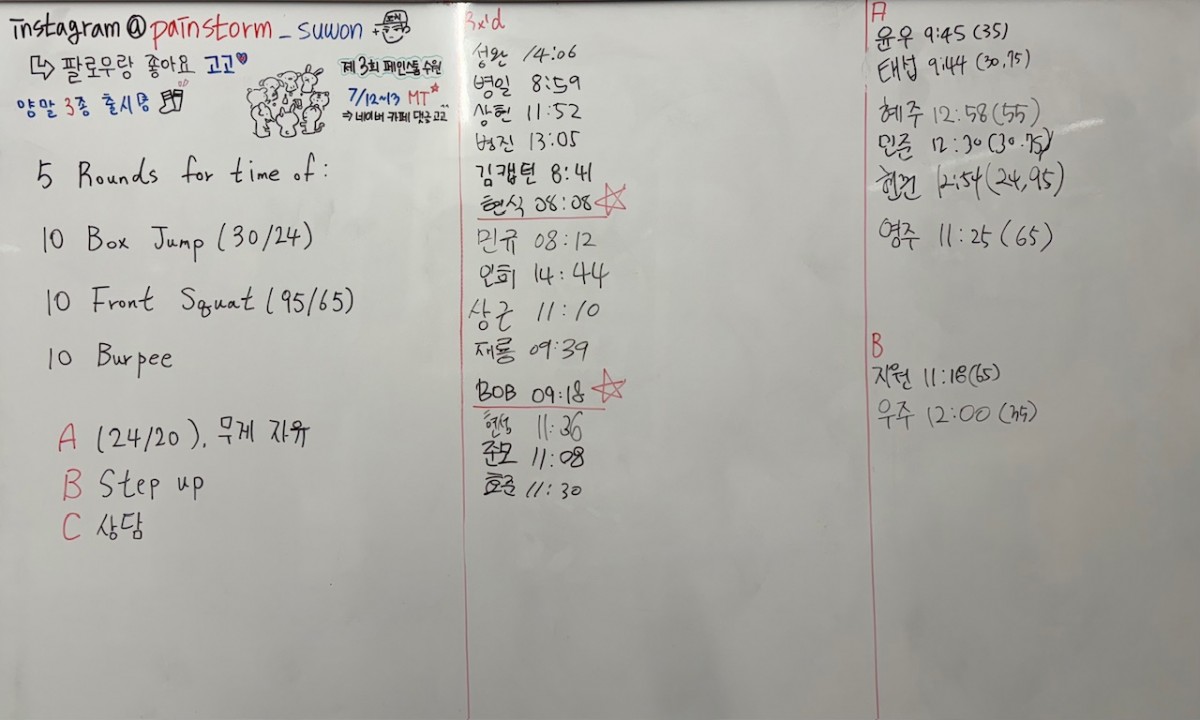 instagram @ painstorm _ suwon +
↳ 팔로우랑 좋아요 고고♥
양말 3종 출시중
제3회 페인스톰 수원
7/12~13 MT☆
⇒ 네이버 카페 댓글 고고
5 Rounds for time of:
10 Box Jump (30/24)
10 Front Squat (95/65)
10 Burpee
A (24/20), 무게 자유
B Step up
C 상담
Rx'd
성완 14:06
병일 8:59
상헌 11:52
병진 13:05
김캡틴 8:41
현식 08:08☆
민규 08:12
인희 14:44
상근 11:10
재룡 09:39
BOB 09:18☆
현성 11:36
준모 11:08
효준 11:30
A
윤우 9:45 (35)
태섭 9:44 (30,75)
혜주 12:58 (55)
민준 12:30 (30.75)
12:54 (24,95)
영주 11:25 (65)
B
지원 11:18 (65)
우주 12:00 (35)